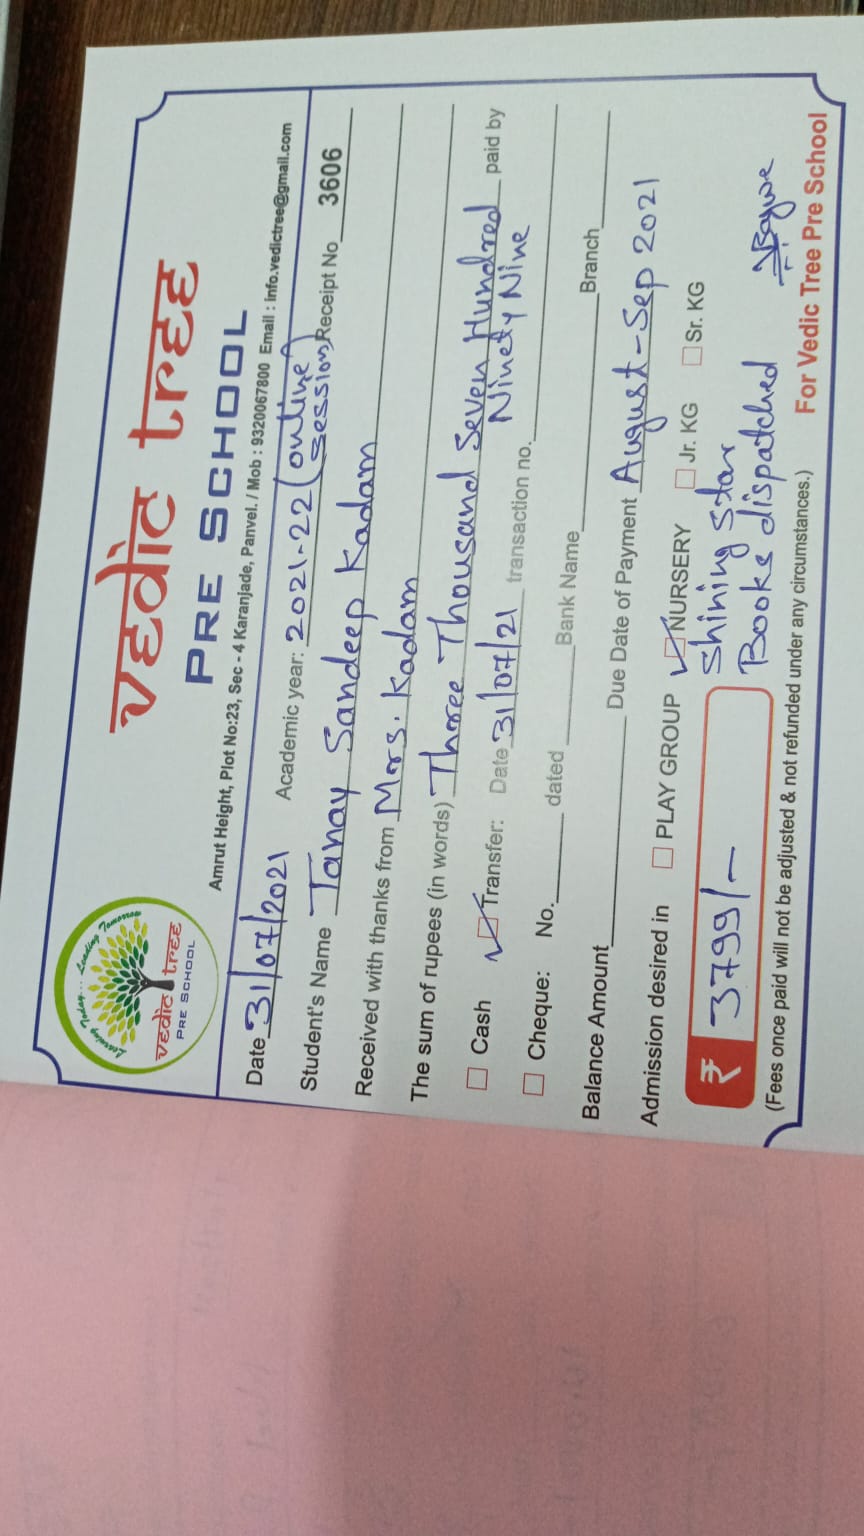 Learning Today... Leading Tomorrow
vedic tree
PRE SCHOOL
vedic tree
PRE SCHOOL
Amrut Height, Plot No:23, Sec - 4 Karanjade, Panvel. / Mob : 9320067800 Email : info.vedictree@gmail.com
Date 31/07/2021 Academic year: 2021-22 (online session) Receipt No 3606
Student's Name Tanay Sandeep Kadam
Received with thanks from Mrs. Kadam
The sum of rupees (in words) Three Thousand Seven Hundred paid by
Ninety Nine
Cash Transfer: Date 31/07/21 transaction no.
Cheque: No. dated Bank Name Branch
Balance Amount Due Date of Payment August-Sep 2021
Admission desired in PLAY GROUP NURSERY Jr. KG Sr. KG
Shining Star
₹ 3799/- Books dispatched
(Fees once paid will not be adjusted & not refunded under any circumstances.) For Vedic Tree Pre School